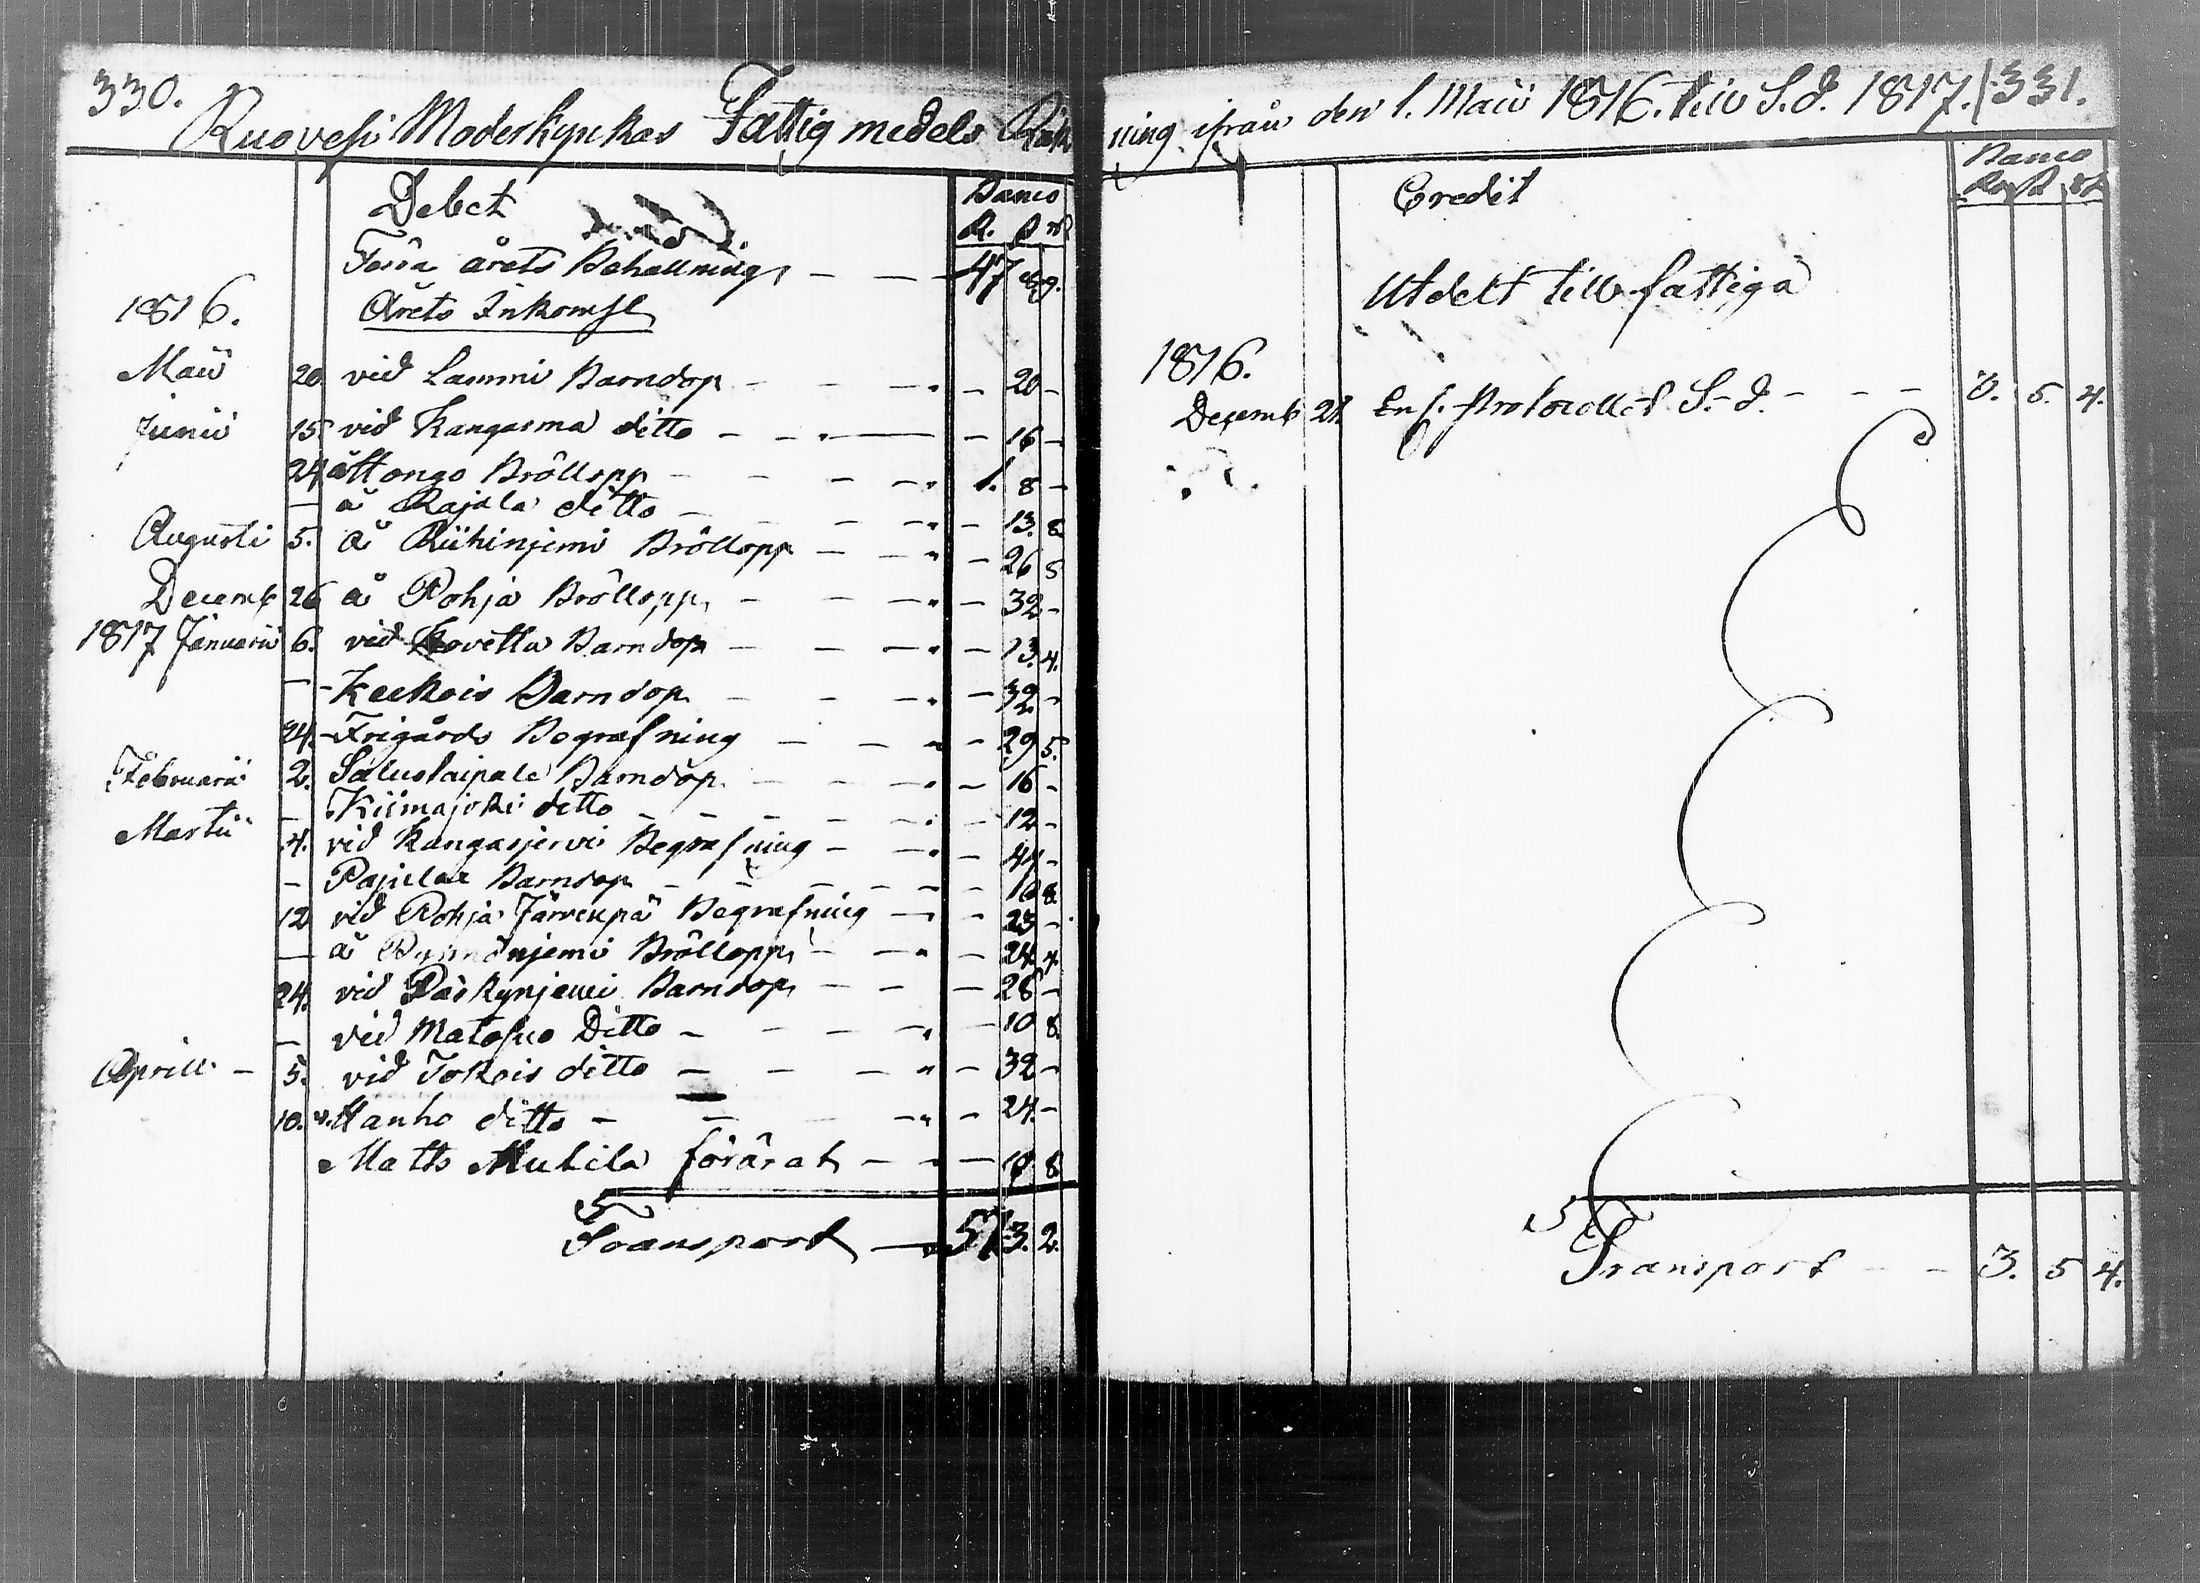 330.
Ruovesi Moderkyrkas Fattig medels Räk
Debet Banco
R. ß rst
Förra årets Behållning, — — 47
1816. Årets Inkomst
Maii 20. vid Lammi Barndop — — — 20 —
Junii 15. vid Kangasma ditto — — — 16 —
24 å Hongo Bröllopp — — — 1. 8 —
— å Rajala ditto — — — 13. 8.
Augusti 5. å Riihinjemi Bröllopp — — — 26 5
Decemb 26 å Pohja Bröllopp, — — — 32 —
1817 Januarii 6. vid Kovetta Barndop — — — 13. 4.
— Keckois Barndop — — — 32 —
24. Frigårds Begrafning — — — 29 5.
Februarii 2. Saluslaipale Barndop. — — — 16 —
— Kiimajoki ditto — — — 12 —
Martii 4. vid Kangasjervi Begrafning — — 44 —
— Pajulax Barndop — — — 10 8
12 vid Pohja Järvenpä Begrafning — — 23 —
— å njemi Bröllopp, — — 24. 4.
24. vid Päskynjemi Barndop, — — — 28 —
— vid Matosuo Ditto — — — 10 8.
Aprill — 5. vid Jokois ditto — — — 32 —
10. v. Hanho ditto — — — 24. —
Matts Mutila förärat — — 10 8
Transport — 57 3. 2.
ning ifrån den 1. Maii 1816. till S. d. 1817. 331.
Credit Banco
R ß rst
Utdelt till fattiga
1816.
Decemb 21. Enl. Protocollet S. d. — — — 3. 5. 4.
Transport — — 3. 5 4.